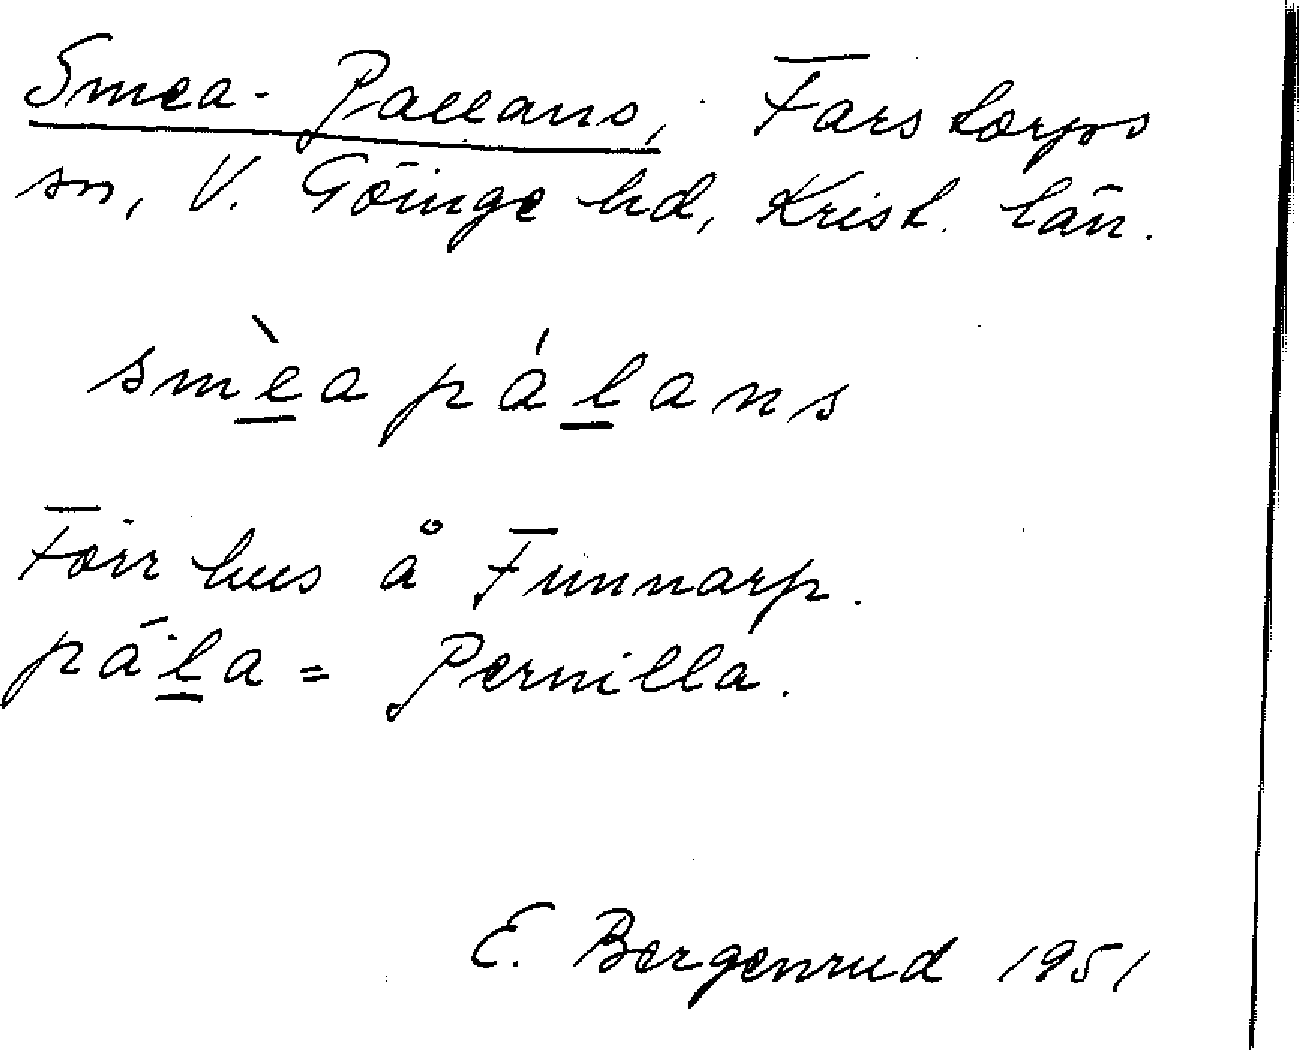 Smea-Pallans, Farstorps
sn, V. Göinge hd, Krist. län.
smèa pálans
Förr hus å Funnarp.
pála = Pernilla.
E. Bergenrud 1951